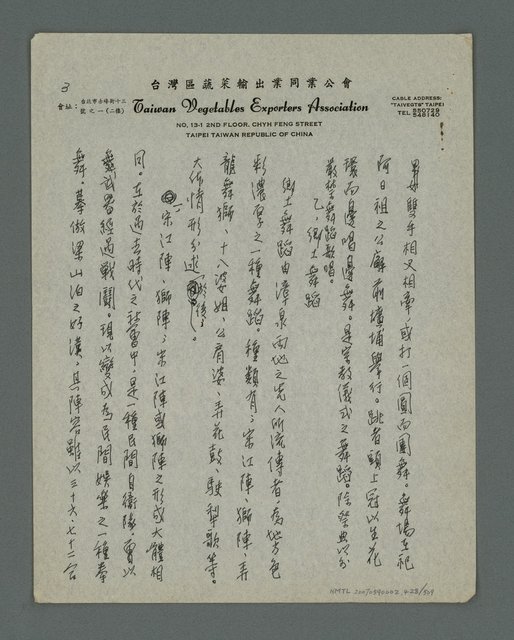 3
台灣區蔬菜輸出業同業公會
會址：台北市赤峰街十三號之一(二樓)
Taiwan Vegetables Exporters Association
NO, 13-1 2ND FLOOR, CHYH FENG STREET
TAIPEI TAIWAN REPUBLIC OF CHINA
CABLE ADDRESS:
"TAIVEGTS" TAIPEI
TEL 550729
548140
男女雙手相叉相牽，或打一個圓而團舞。舞場在祀
阿日祖之公廨前壙埔舉行。跳者頭上冠以生花
環而邊唱邊舞。是宗教儀式之舞蹈。除祭典以外
嚴禁舞蹈歌唱。
乙、鄉土舞蹈
鄉土舞蹈由漳泉兩地之先人所流傳者，為地方色
彩濃厚之一種舞蹈。種類有：宋江陣、獅陣、弄
龍舞獅、十八婆姐、公背婆、弄花鼓、駛犁歌等。
大体情形分述於後：
一、宋江陣、獅陣：宋江陣或獅陣之形式大體相
同。在於過去時代之社會中，是一種民間自衛隊，曾以
武器經過戰鬪。現以變成為民間娛樂之一種拳
舞，摹倣梁山泊之好漢，其陣容雖以三十六、七十二、一〇
NMTL 20070590002 428/509